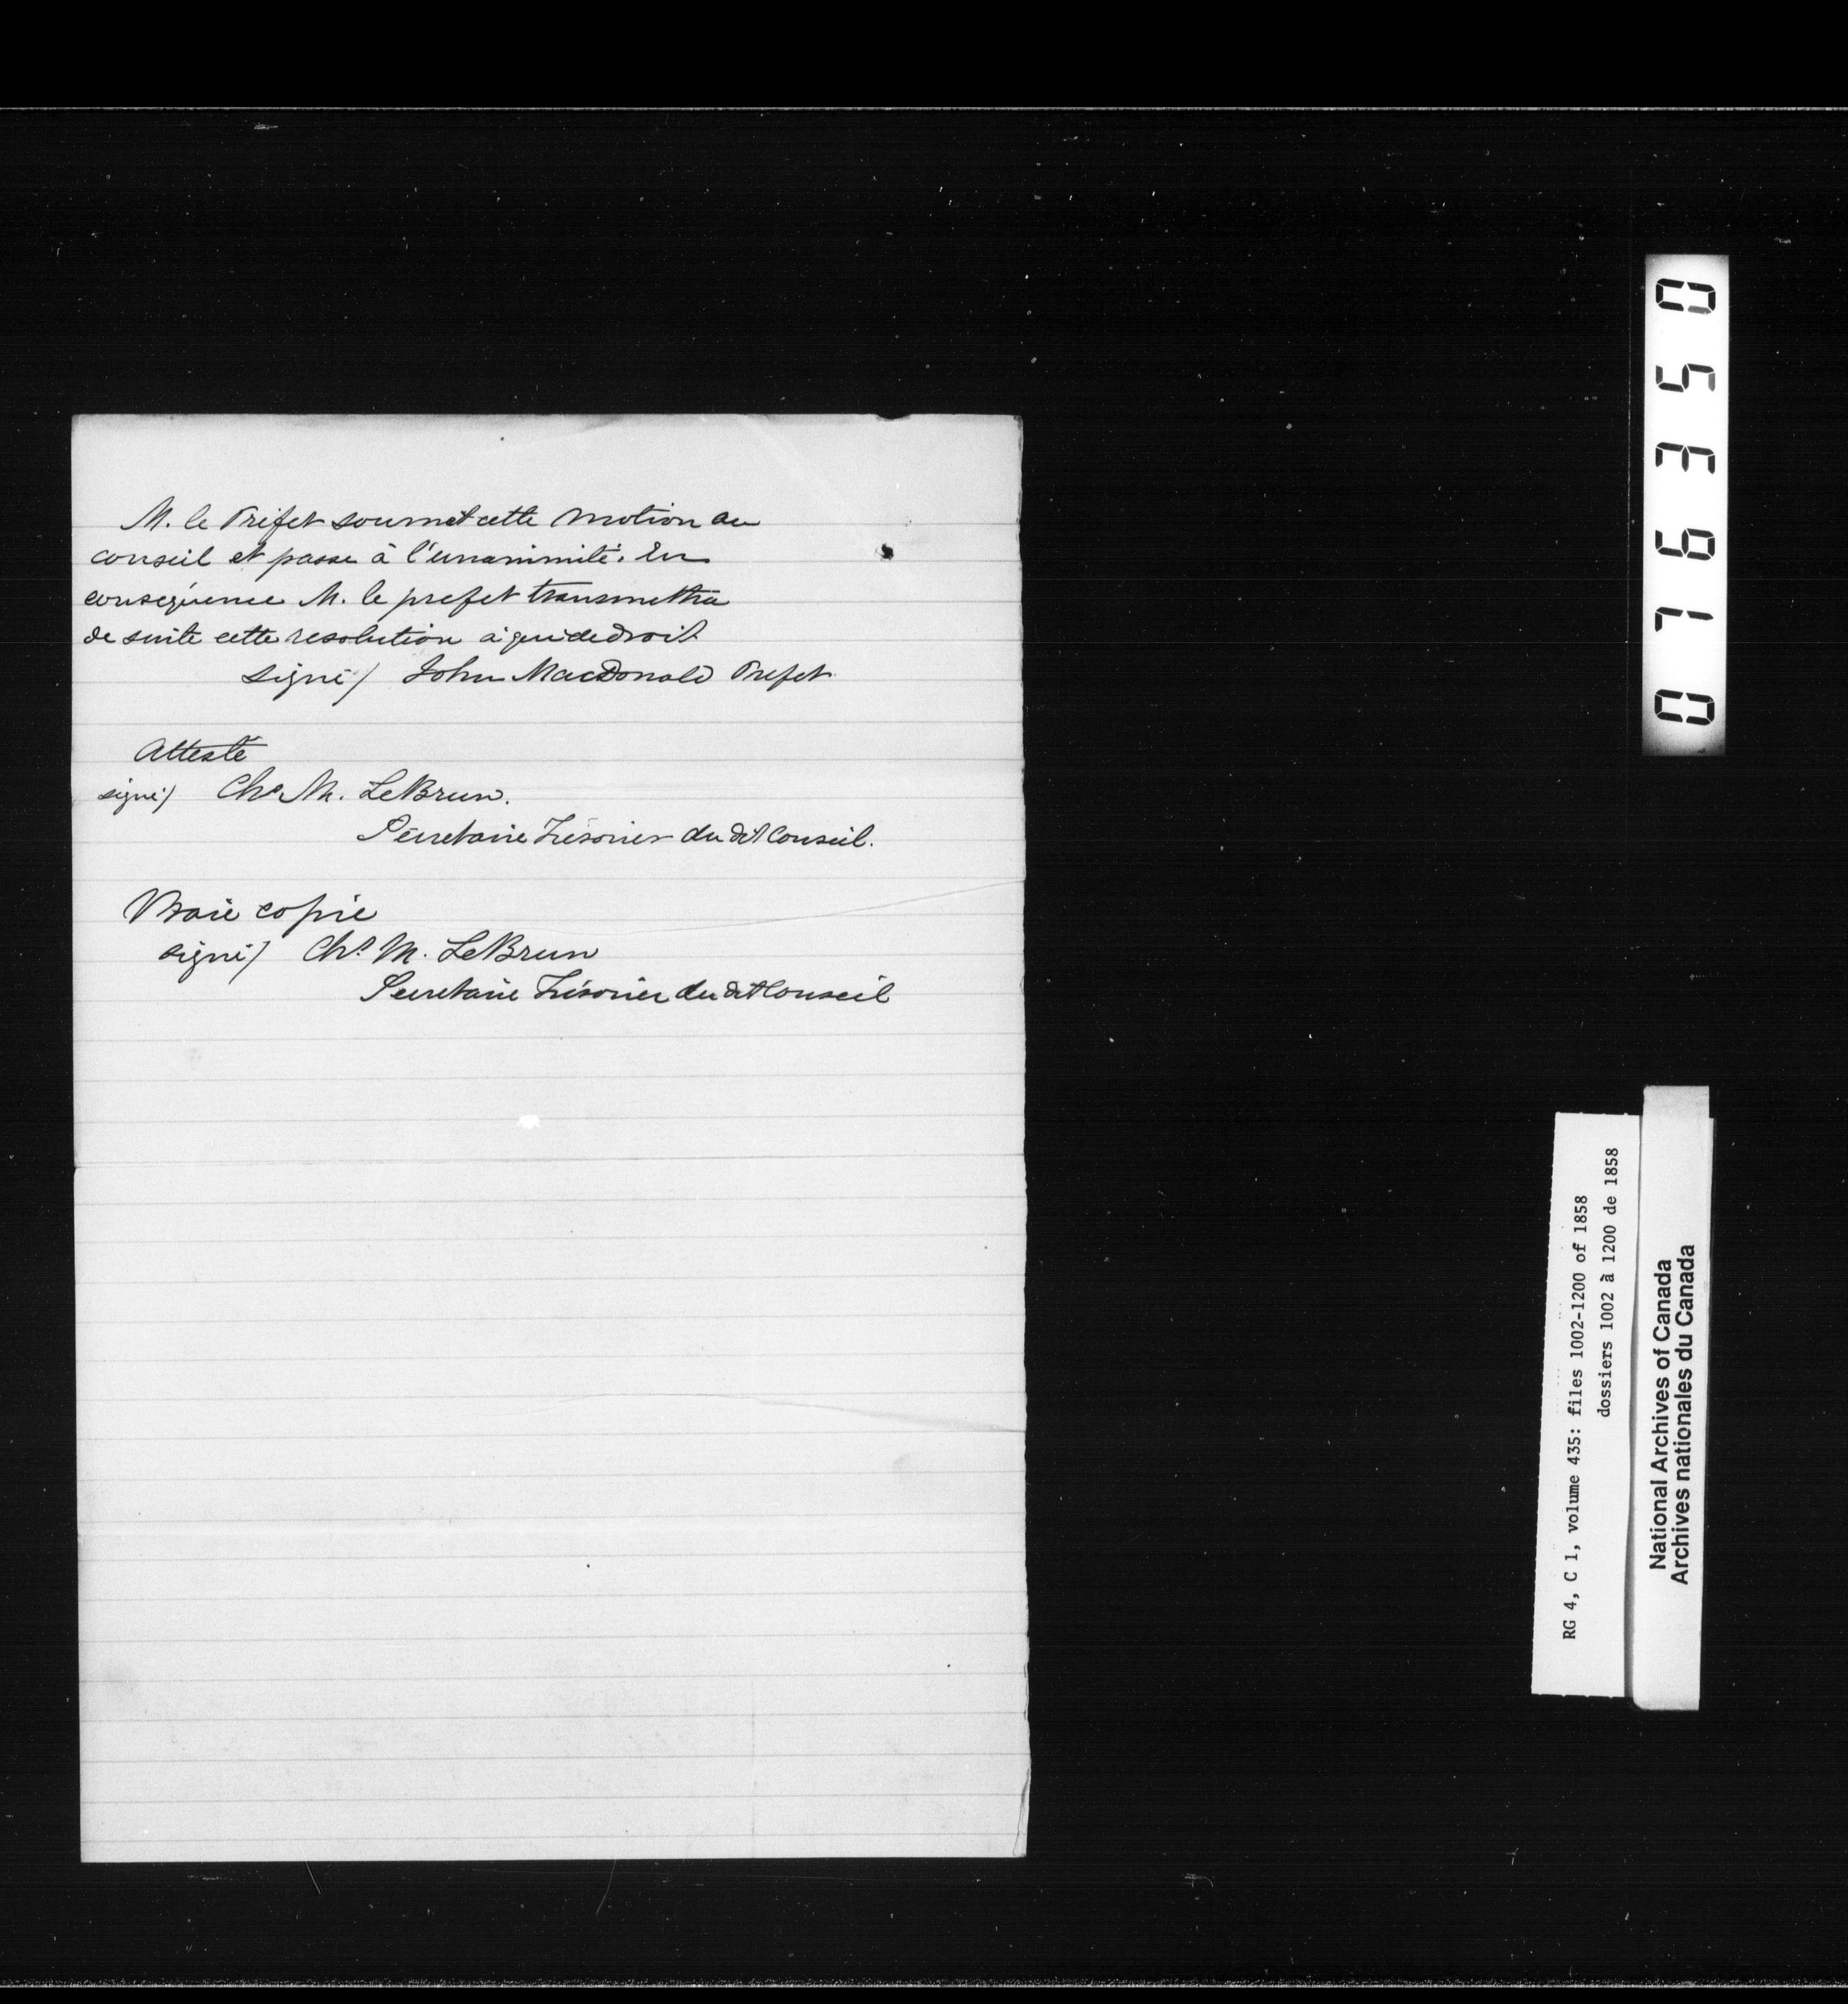 M. le Préfet soumet cette motion au
conseil et passe à l'unanimité. En
conséquence M. le prefet transmettra
de suite cette resolution à qui de droit
signé / John MacDonald Prefet
Attesté
signé / Chs M. LeBrun.
Secretaire Trésorier du dit Conseil.
Vraie copie
signé / Chs M. LeBrun
Secretaire Trésorier du dit Conseil
076350
RG 4, C 1, volume 435: files 1002-1200 of 1858
dossiers 1002 à 1200 de 1858
National Archives of Canada
Archives nationales du Canada